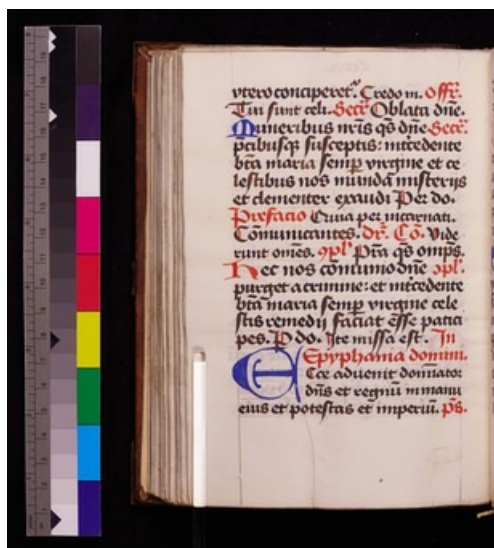 vtero conciperet^r. Credo in. Offr.
Tui sunt celi. Secr̄ Oblata dñe.
Muneribus nr̄is q̄s dñe Secr̄.
p̄cibusq̨ susceptis: int̄cedente
bt̄a maria semp̲ virgine et ce
lestibus nos munda misterijs
et clementer exaudi Per do.
Prefacio Quia per incarnati.
Cōmunicantes. dr̄. Cō. Vide
runt om̄es. ꝯpl̄ Pr̄a q̄s omp̄s.
Hec nos cōmunio dn̄e ꝯpl̄.
purget a crimine: et int̄cedente
bt̄a maria semp̲ virgine cele
stis remedij faciat esse patici
pes. P do. Ite missa est. In
Epyphania domini.
Ecce aduenit dominator
dn̄s et regnū in manu
eius et potestas et imperiū. p̄s.